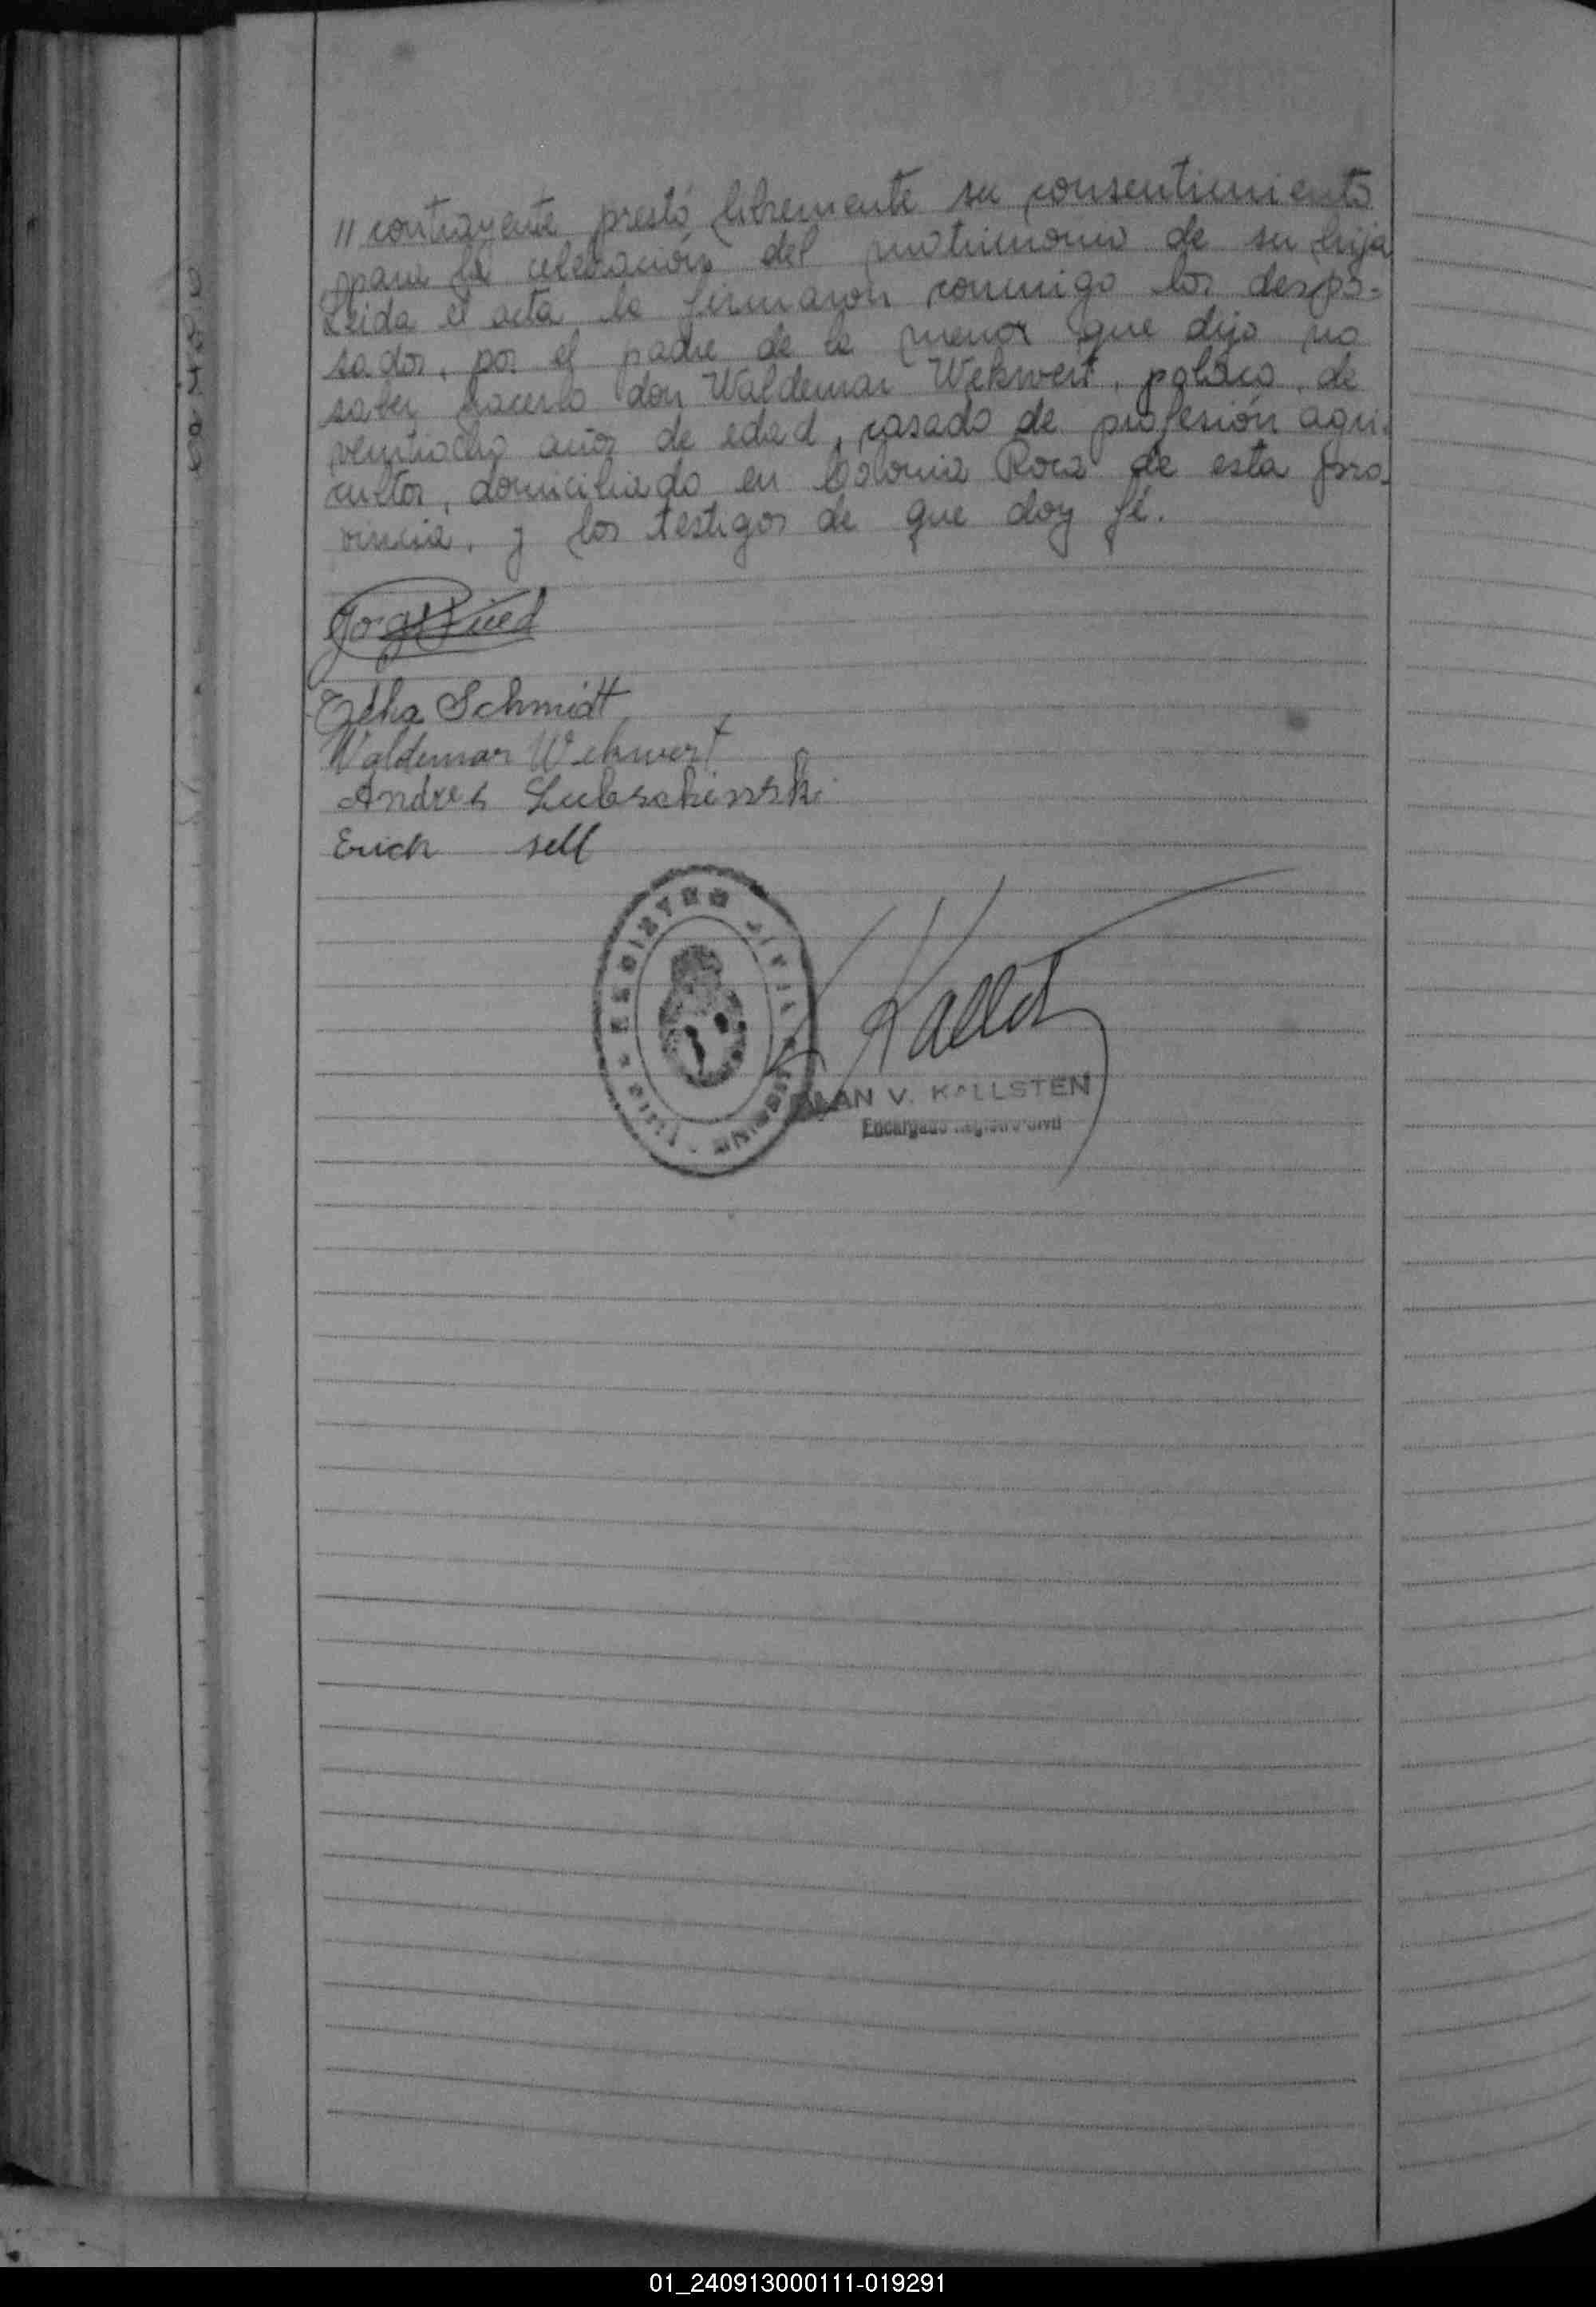 " contrayente prestó libremente su consentimiento
para la celebración del matrimonio de su hija
Leida el acta la firmaron conmigo los despo-
sados, por el padre de la menor que dijo no
saber hacerlo don Waldemar Wekwert, polaco, de
veintiocho años de edad, casado de profesión agri-
cultor, domiciliado en Colonia Roca de esta pro-
vincia, y los testigos de que doy fé.
Schmidt
Waldemar Wekwert
Andres Lubschinski
Erich sell
REGISTRO CIVIL
MISIONES
V. KALLSTEN
Encargado Registro Civil
01_240913000111-019291